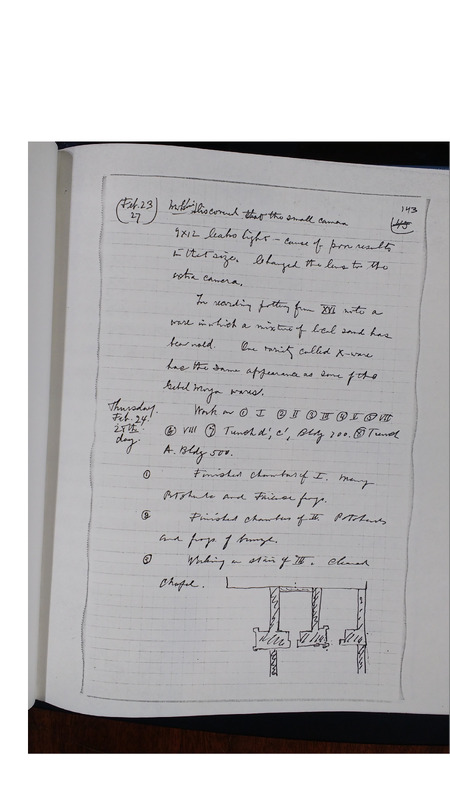 143
Feb. 23 discovered that the small camera
27 45
9x12 leaks light - cause of poor results
in that size. Changed the lens to the
extra camera.
In recording pottery from XVI note a
ware in which a mixture of local sand has
been used. One variety called X-ware
has the same appearance as some of the
Gebel Moya wares.
Thursday Work on ① I ② II ③ III ④ V ⑤ VII
Feb. 24 ⑥ VIII ⑦ Trench d', c', Bldg 200. ⑧ Trench
25th
day A. Bldg 500.
① Finished chambers of I. Many
Potsherds and Faience frags.
② Finished chambers of II. Potsherds
and frags of bronze.
③ Working on stair of III. Cleared
Chapel.